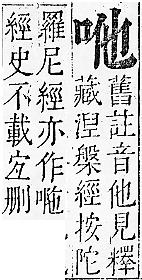 㖿
舊註音他見釋
藏涅槃經按陀
羅尼經亦作㖿
經史不載宜刪